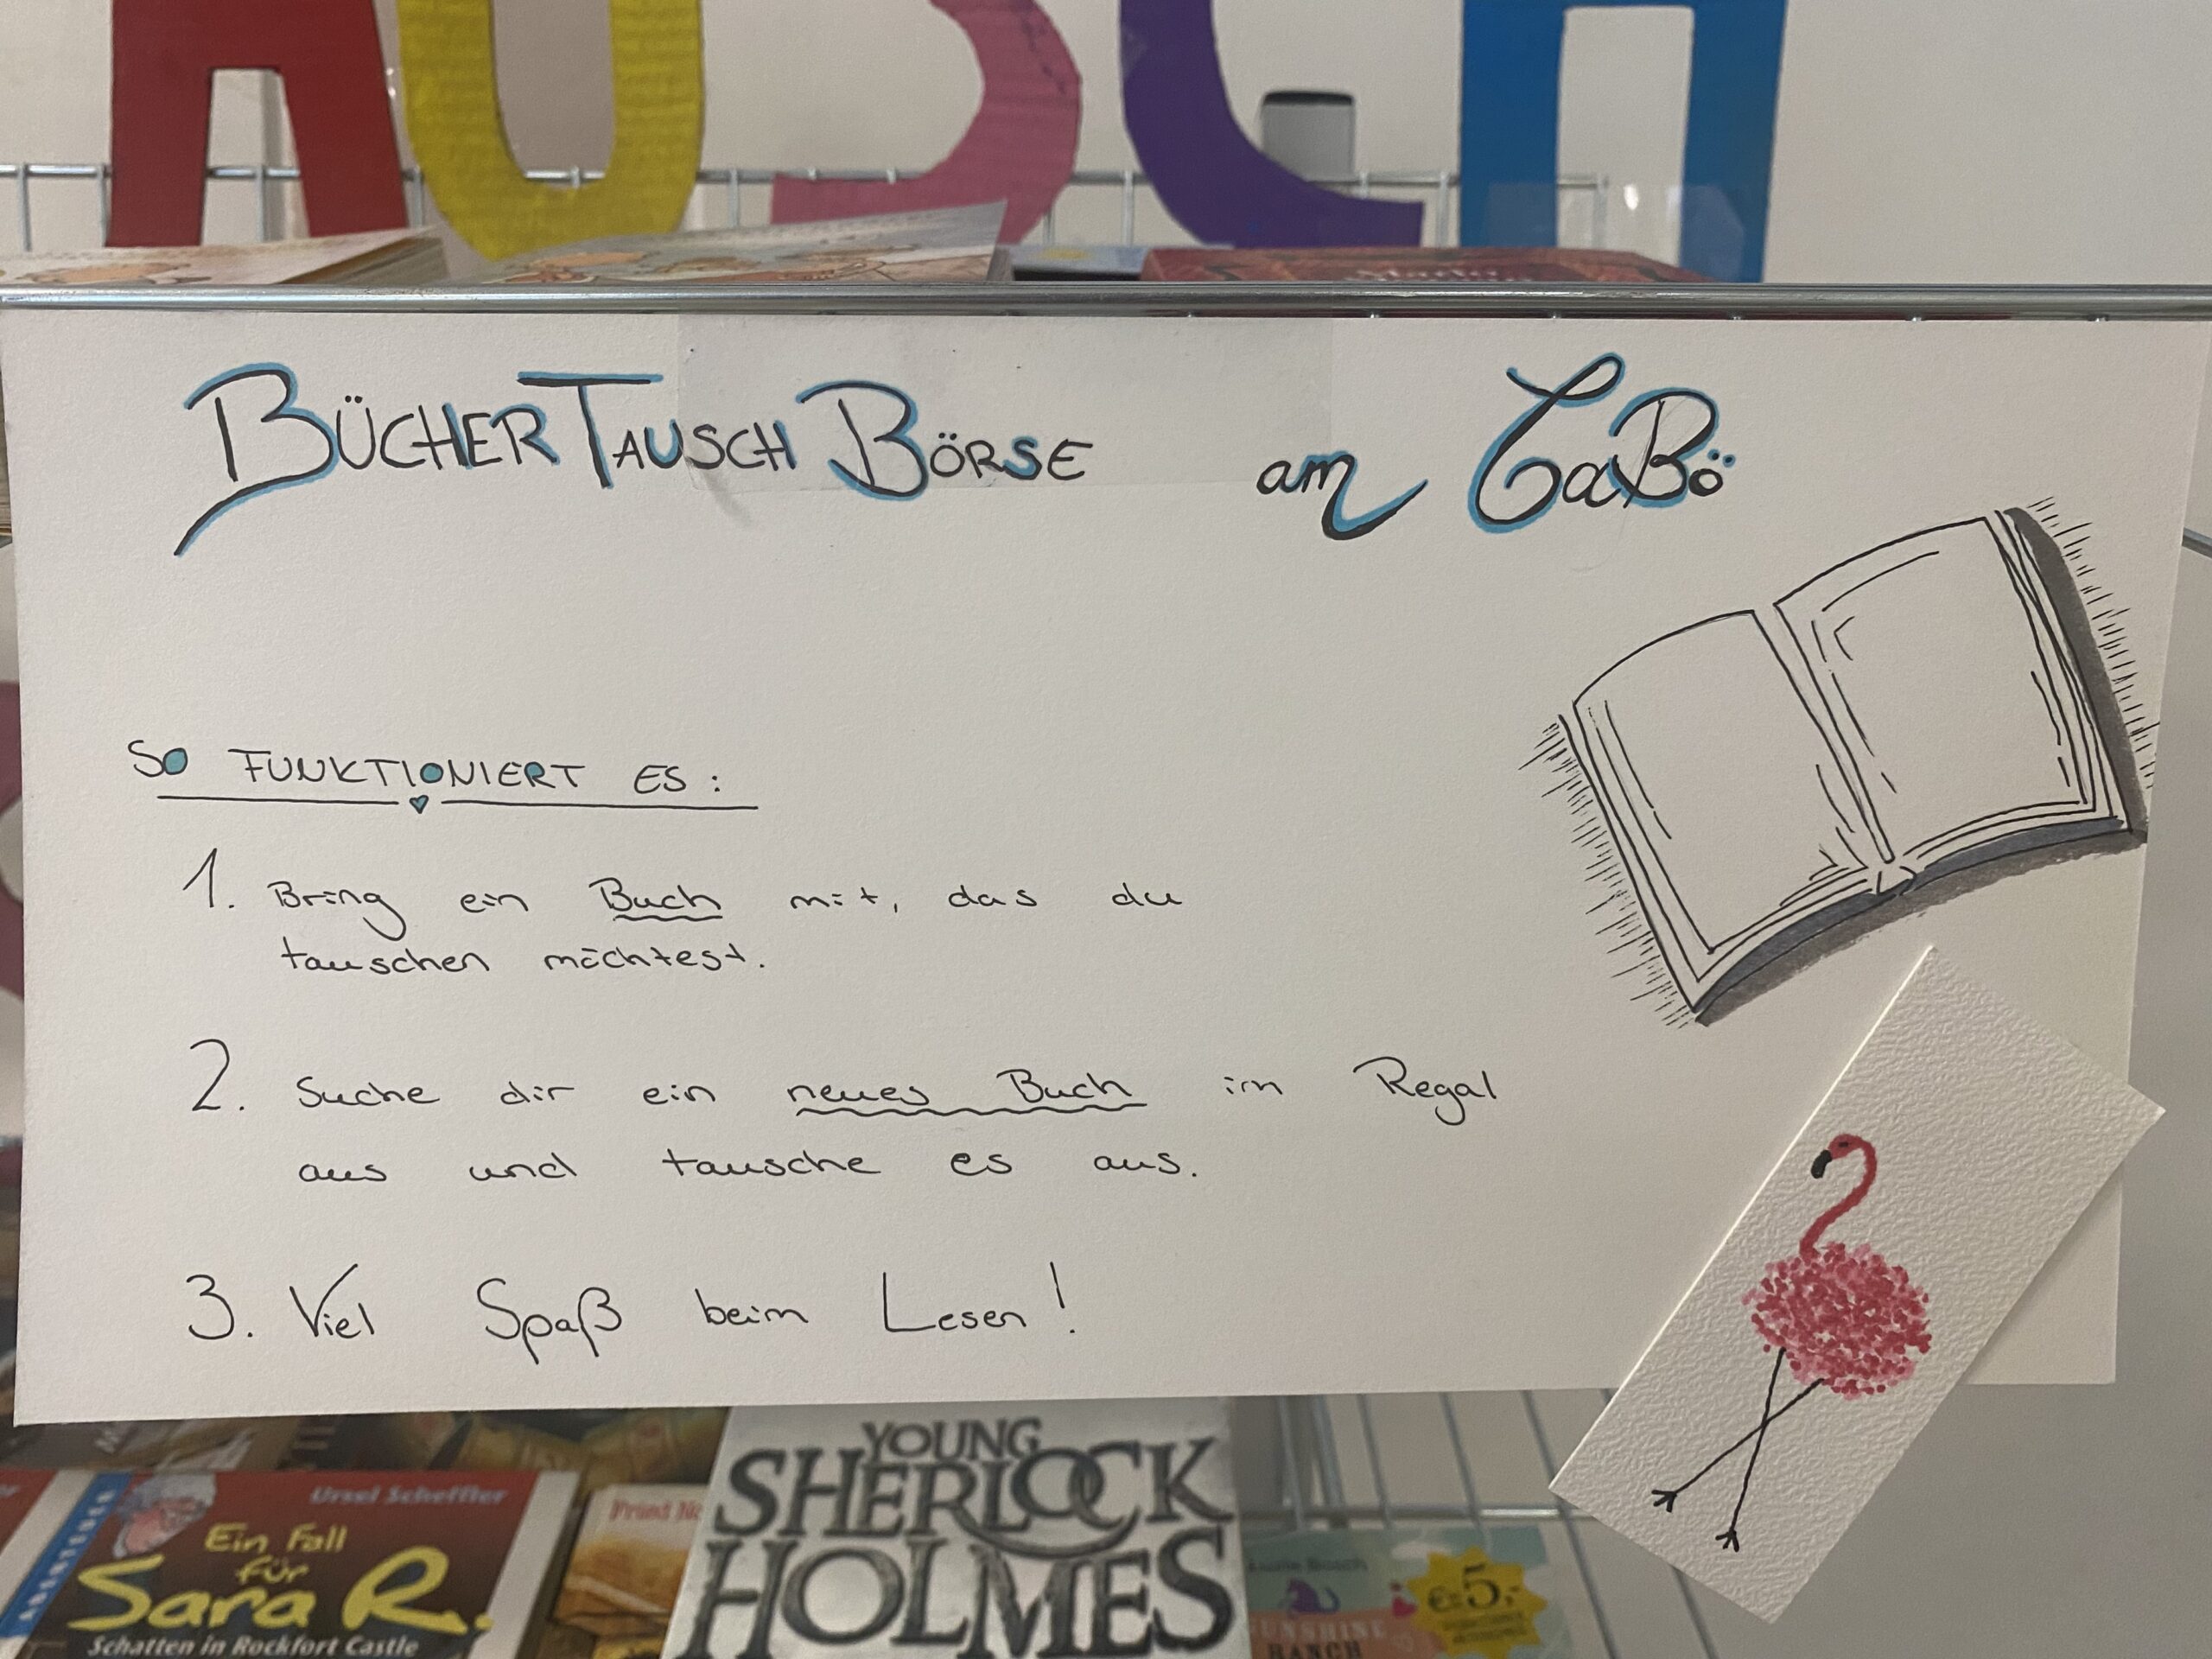 AUSCH
BÜCHERTAUSCHBÖRSE am CaBö
SO FUNKTIONIERT ES:
1. Bring ein Buch mit, das du
tauschen möchtest.
2. Suche dir ein neues Buch im Regal
aus und tausche es aus.
3. Viel Spaß beim Lesen!
Ursel Scheffler
Ein Fall
für
Sara R.
Schatten in Rockfort Castle
YOUNG
SHERLOCK
HOLMES
€ 5,-
SUNSHINE
RANCH